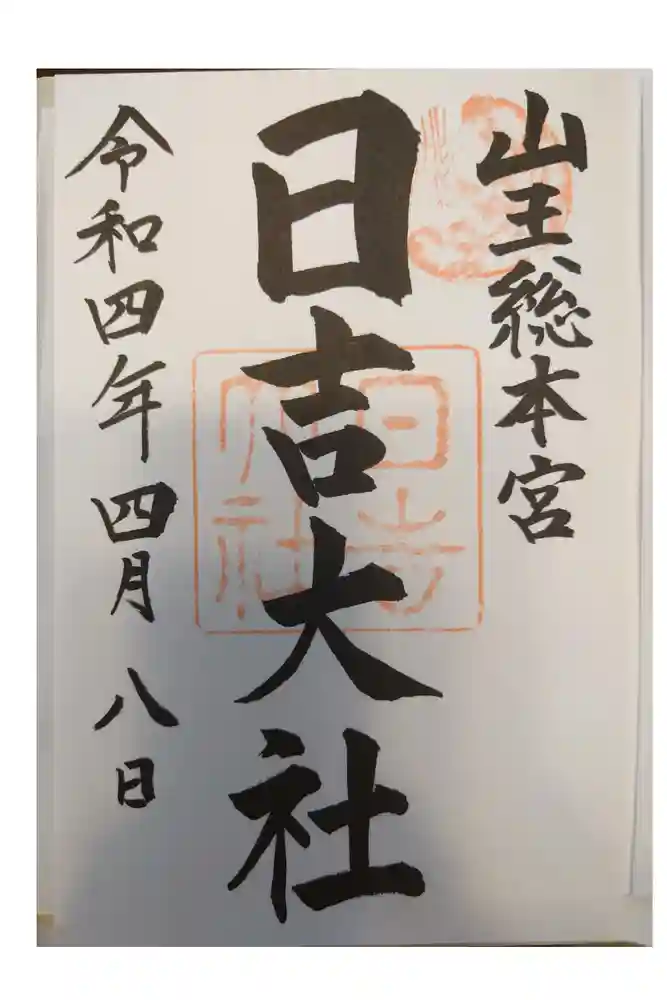 山王総本宮
日吉大社
令和四年四月八日
日吉
大社